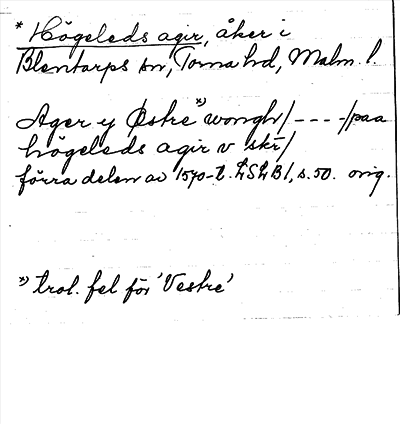 * Högeleds agir, åker i
Blentarps sn, Torna hd, Malm. l.
Ager y Østre *) wongh/ - - - -/paa
högeleds agir v skr/
förra delen av 1570-t. LSLB1, s. 50. orig.
*) trol. fel för 'Vestre'